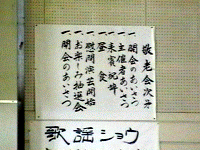 敬老会次第
一 開会のあいさつ
一 主催者あいさつ
一 来賓祝辞
一 昼食
一 慰問演芸開始
一 お楽しみ抽選会
一 閉会のあいさつ
歌謡ショウ